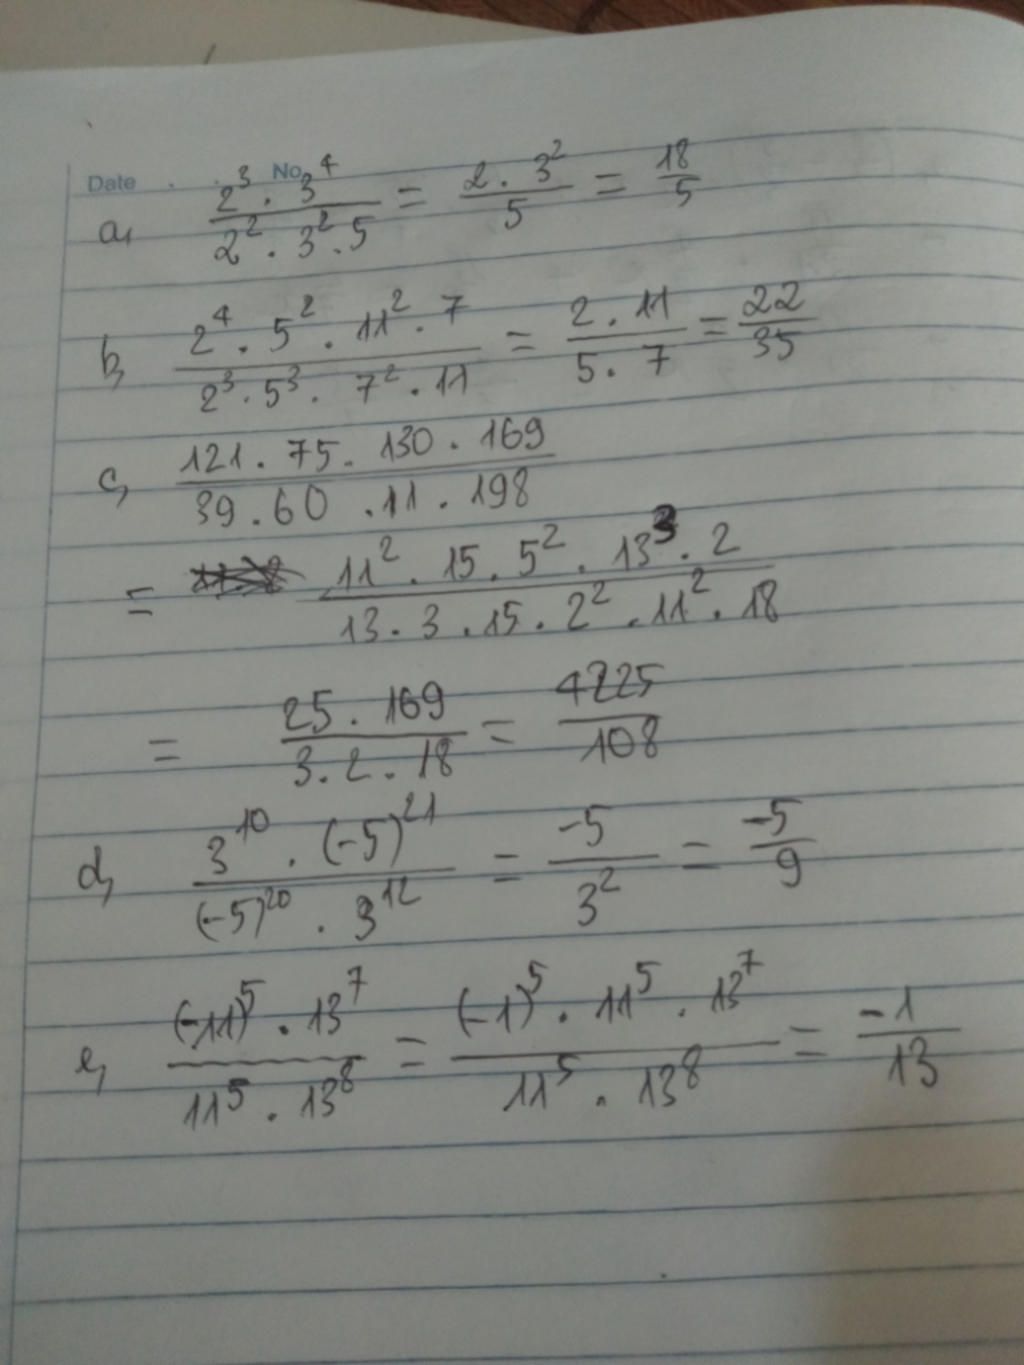 Date No
a, \frac{2^3 . 3^4}{2^2 . 3^2 . 5} = \frac{2 . 3^2}{5} = \frac{18}{5}
b, \frac{2^4 . 5^2 . 11^2 . 7}{2^3 . 5^3 . 7^2 . 11} = \frac{2 . 11}{5 . 7} = \frac{22}{35}
c, \frac{121 . 75 . 130 . 169}{39 . 60 . 11 . 198}
= \frac{11^2 . 15 . 5^2 . 13^3 . 2}{13 . 3 . 15 . 2^2 . 11^2 . 18}
= \frac{25 . 169}{3 . 2 . 18} = \frac{4225}{108}
d, \frac{3^{10} . (-5)^{21}}{(-5)^{20} . 3^{12}} = \frac{-5}{3^2} = \frac{-5}{9}
e, \frac{(-11)^5 . 13^7}{11^5 . 13^8} = \frac{(-1)^5 . 11^5 . 13^7}{11^5 . 13^8} = \frac{-1}{13}